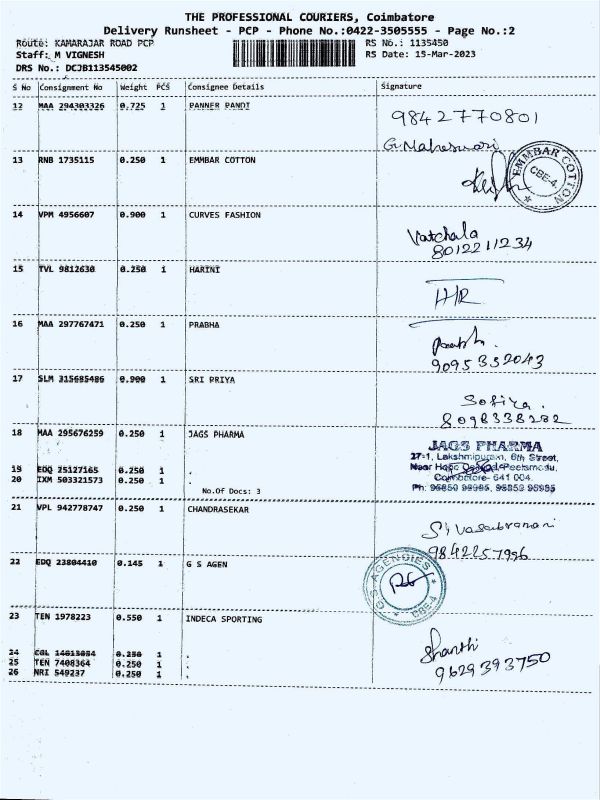 THE PROFESSIONAL COURIERS, Coimbatore
Delivery Runsheet - PCP - Phone No.:0422-3505555 - Page No.:2
Route: KAMARAJAR ROAD PCP RS No.: 1135450
Staff: M VIGNESH RS Date: 15-Mar-2023
DRS No.: DCJB113545002
S No Consignment No Weight PCS Consignee Details Signature
12 MAA 294303326 0.725 1 PANNER PANDI 9842770801
G. Maheswari
13 RNB 1735115 0.250 1 EMMBAR COTTON
EMMBAR COTTON CBE-4.
14 VPM 4956607 0.900 1 CURVES FASHION
Vatchala
8012211234
15 TVL 9812630 0.250 1 HARINI
16 MAA 297767471 0.250 1 PRABHA
9095332043
17 SLM 315685486 0.900 1 SRI PRIYA
Sofiya.
8098338282
18 MAA 295676259 0.250 1 JAGS PHARMA
JAGS PHARMA
27-1, Lakshmipuram, 6th Street,
Near Hope Peelamedu,
Coimbatore- 641 004.
19 EDQ 25127165 0.250 1 .
20 IXM 503321573 0.250 1 .
No.Of Docs: 3
21 VPL 942778747 0.250 1 CHANDRASEKAR
9842257996
22 EDQ 23804410 0.145 1 G S AGEN
G.S AGENCIES CBE-4
23 TEN 1978223 0.550 1 INDECA SPORTING
Shanthi
9629393750
24 0.250 1 .
25 TEN 7408364 0.250 1 .
26 NRI 549237 0.250 1 .